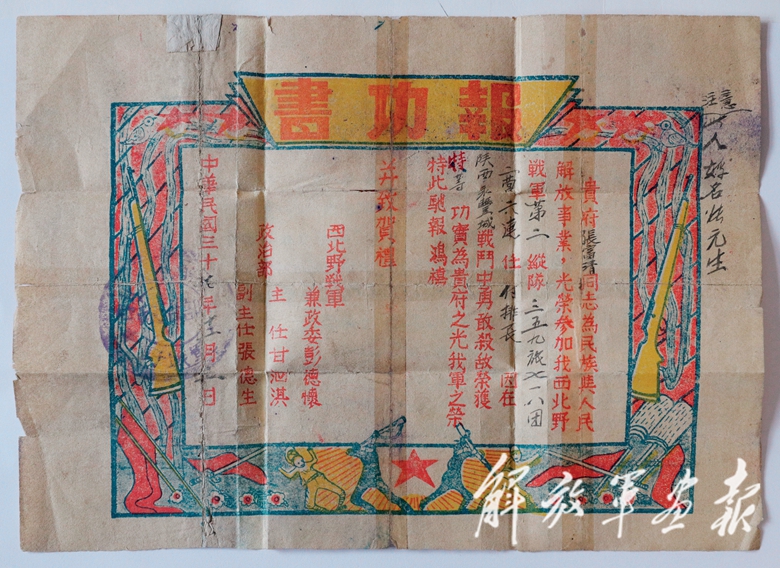 報功書
注意
貴府張富清同志為民族與人民
解放事業，光榮參加我西北野
戰軍第二縱隊三五九旅七一八团
二营六連任付排長因在
陝西永豐城戰鬥中勇敢殺敵榮獲
特等功實為貴府之光我軍之榮
特此馳報鴻禧
并致賀禮
西北野戰軍
兼政委彭德懷
政治部
主任甘泗淇
副主任張德生
中華民國三十七年 月 日
解放軍画報